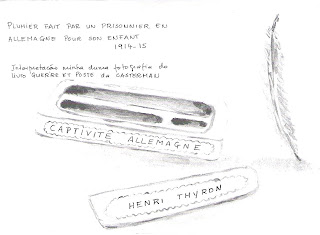 PLUMIER FAIT PAR UN PRISONNIER EN
ALLEMAGNE POUR SON ENFANT
1914-15
Interpretação minha duma fotografia do
livro "GUERRE ET POSTE da CASTERMAN
CAPTIVITÉ ALLEMAGNE
HENRI THYRON